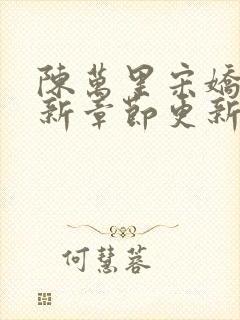 陳萬里宋嬌
新章節更新
何慧蓉